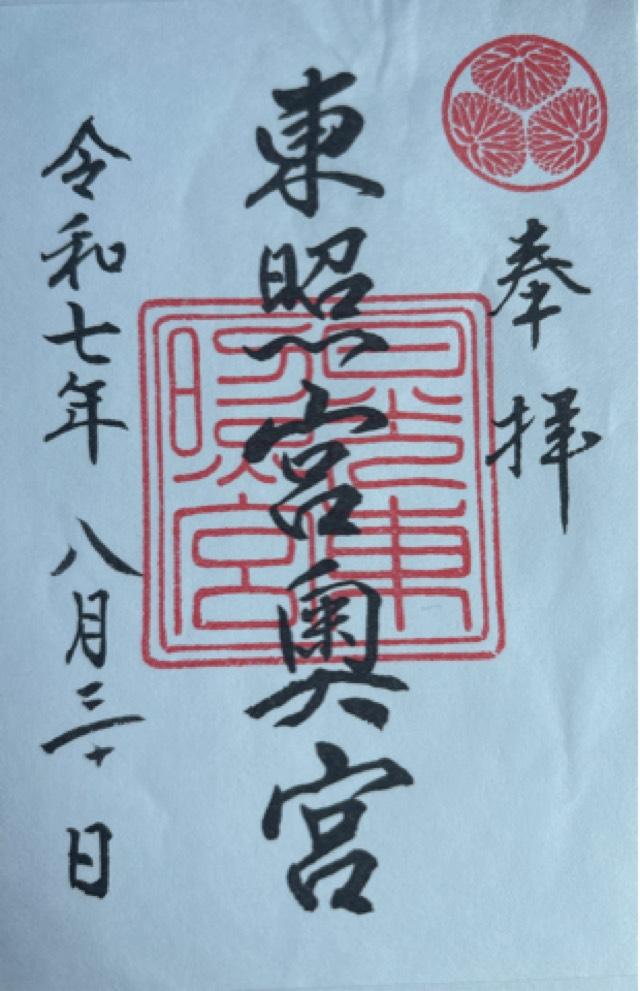 奉拝
東照宮奥宮
日光東照宮
令和七年 八月三十日